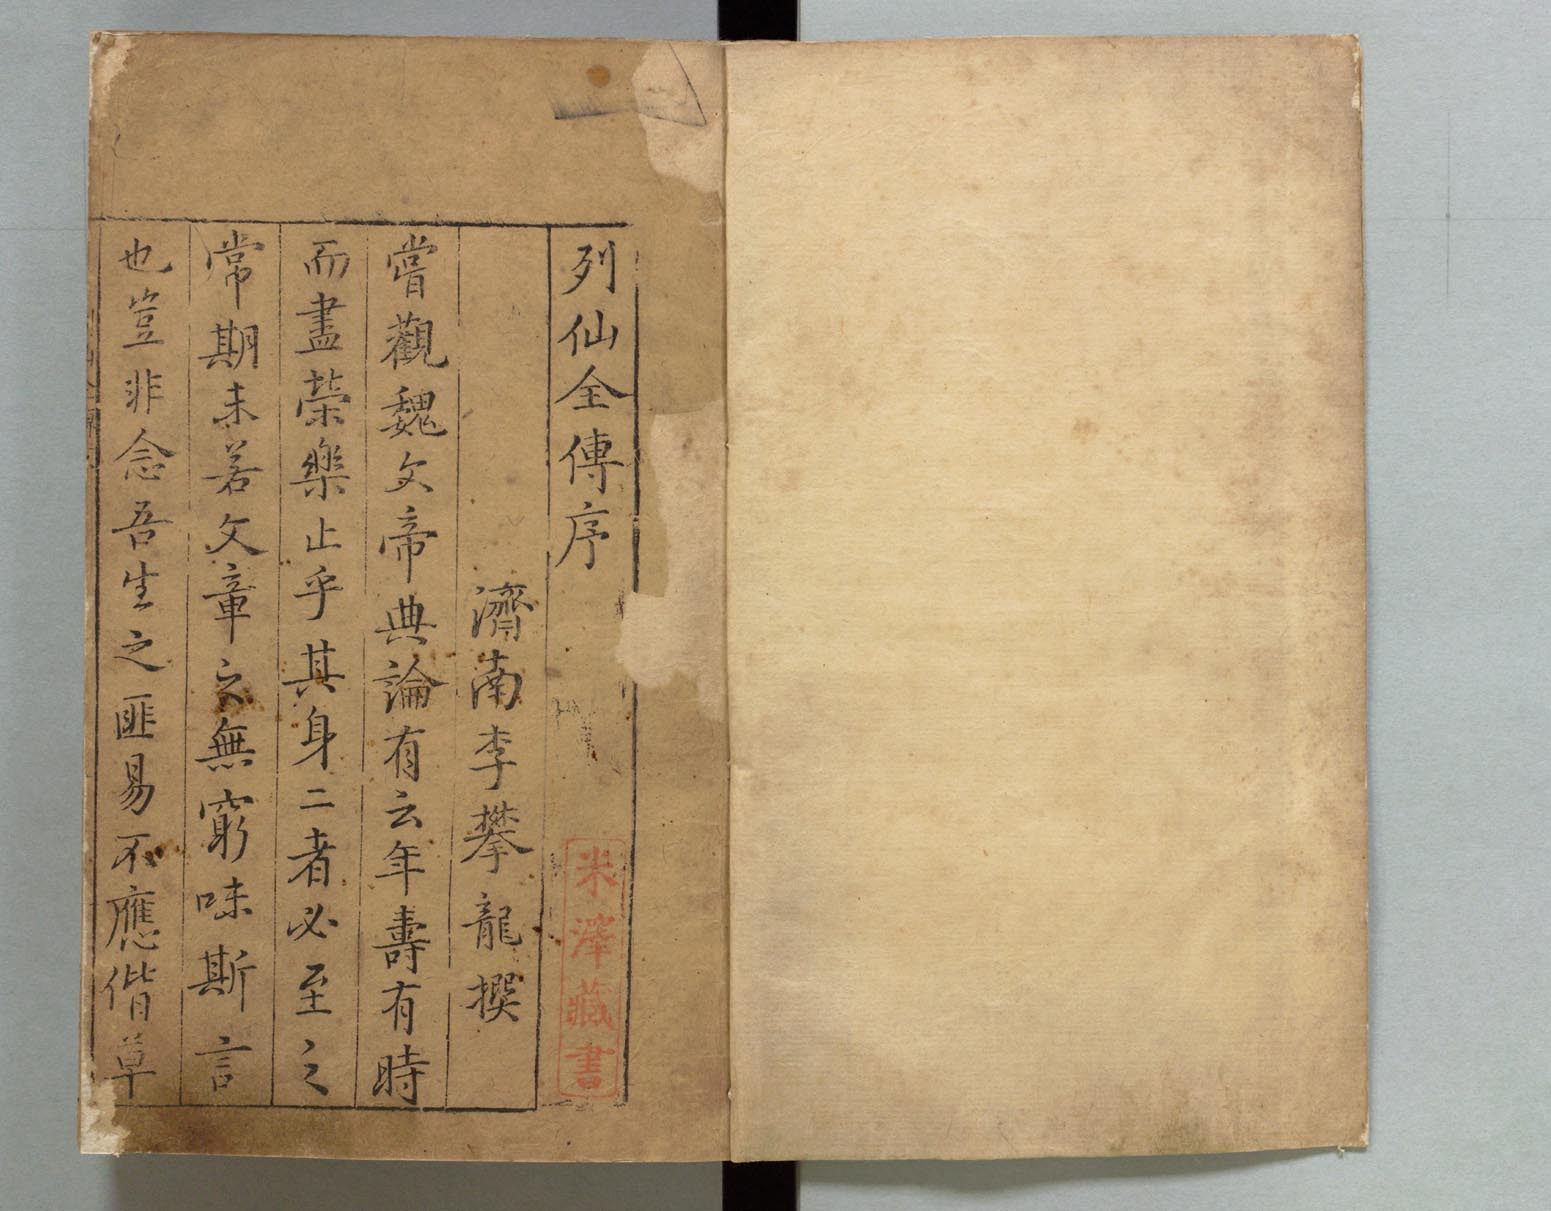 列仙全傳序
濟南李攀龍撰
嘗觀魏文帝典論有云年壽有時
而盡榮樂止乎其身二者必至之
常期未若文章之無窮味斯言
也豈非念吾生之匪易不應偕草
米澤藏書